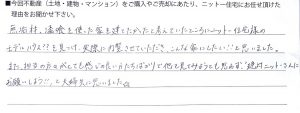 ■今回不動産（土地・建物・マンション）をご購入やご売却にあたり、ニット一住宅にお任せ頂けた
理由をお聞かせ下さい。
無垢材、漆喰を使った家を建てたかったと考えていたところにニット一住宅様の
モデルハウスを見つけ、実際に内覧させていただき、こんな家にしたい!!と思いました。
また、担当の方々がとても感じの良いかたばかりで他で見てみようとも思わず"絶対ニット一さんに
お願いしよう!!"と夫婦共に思いました。